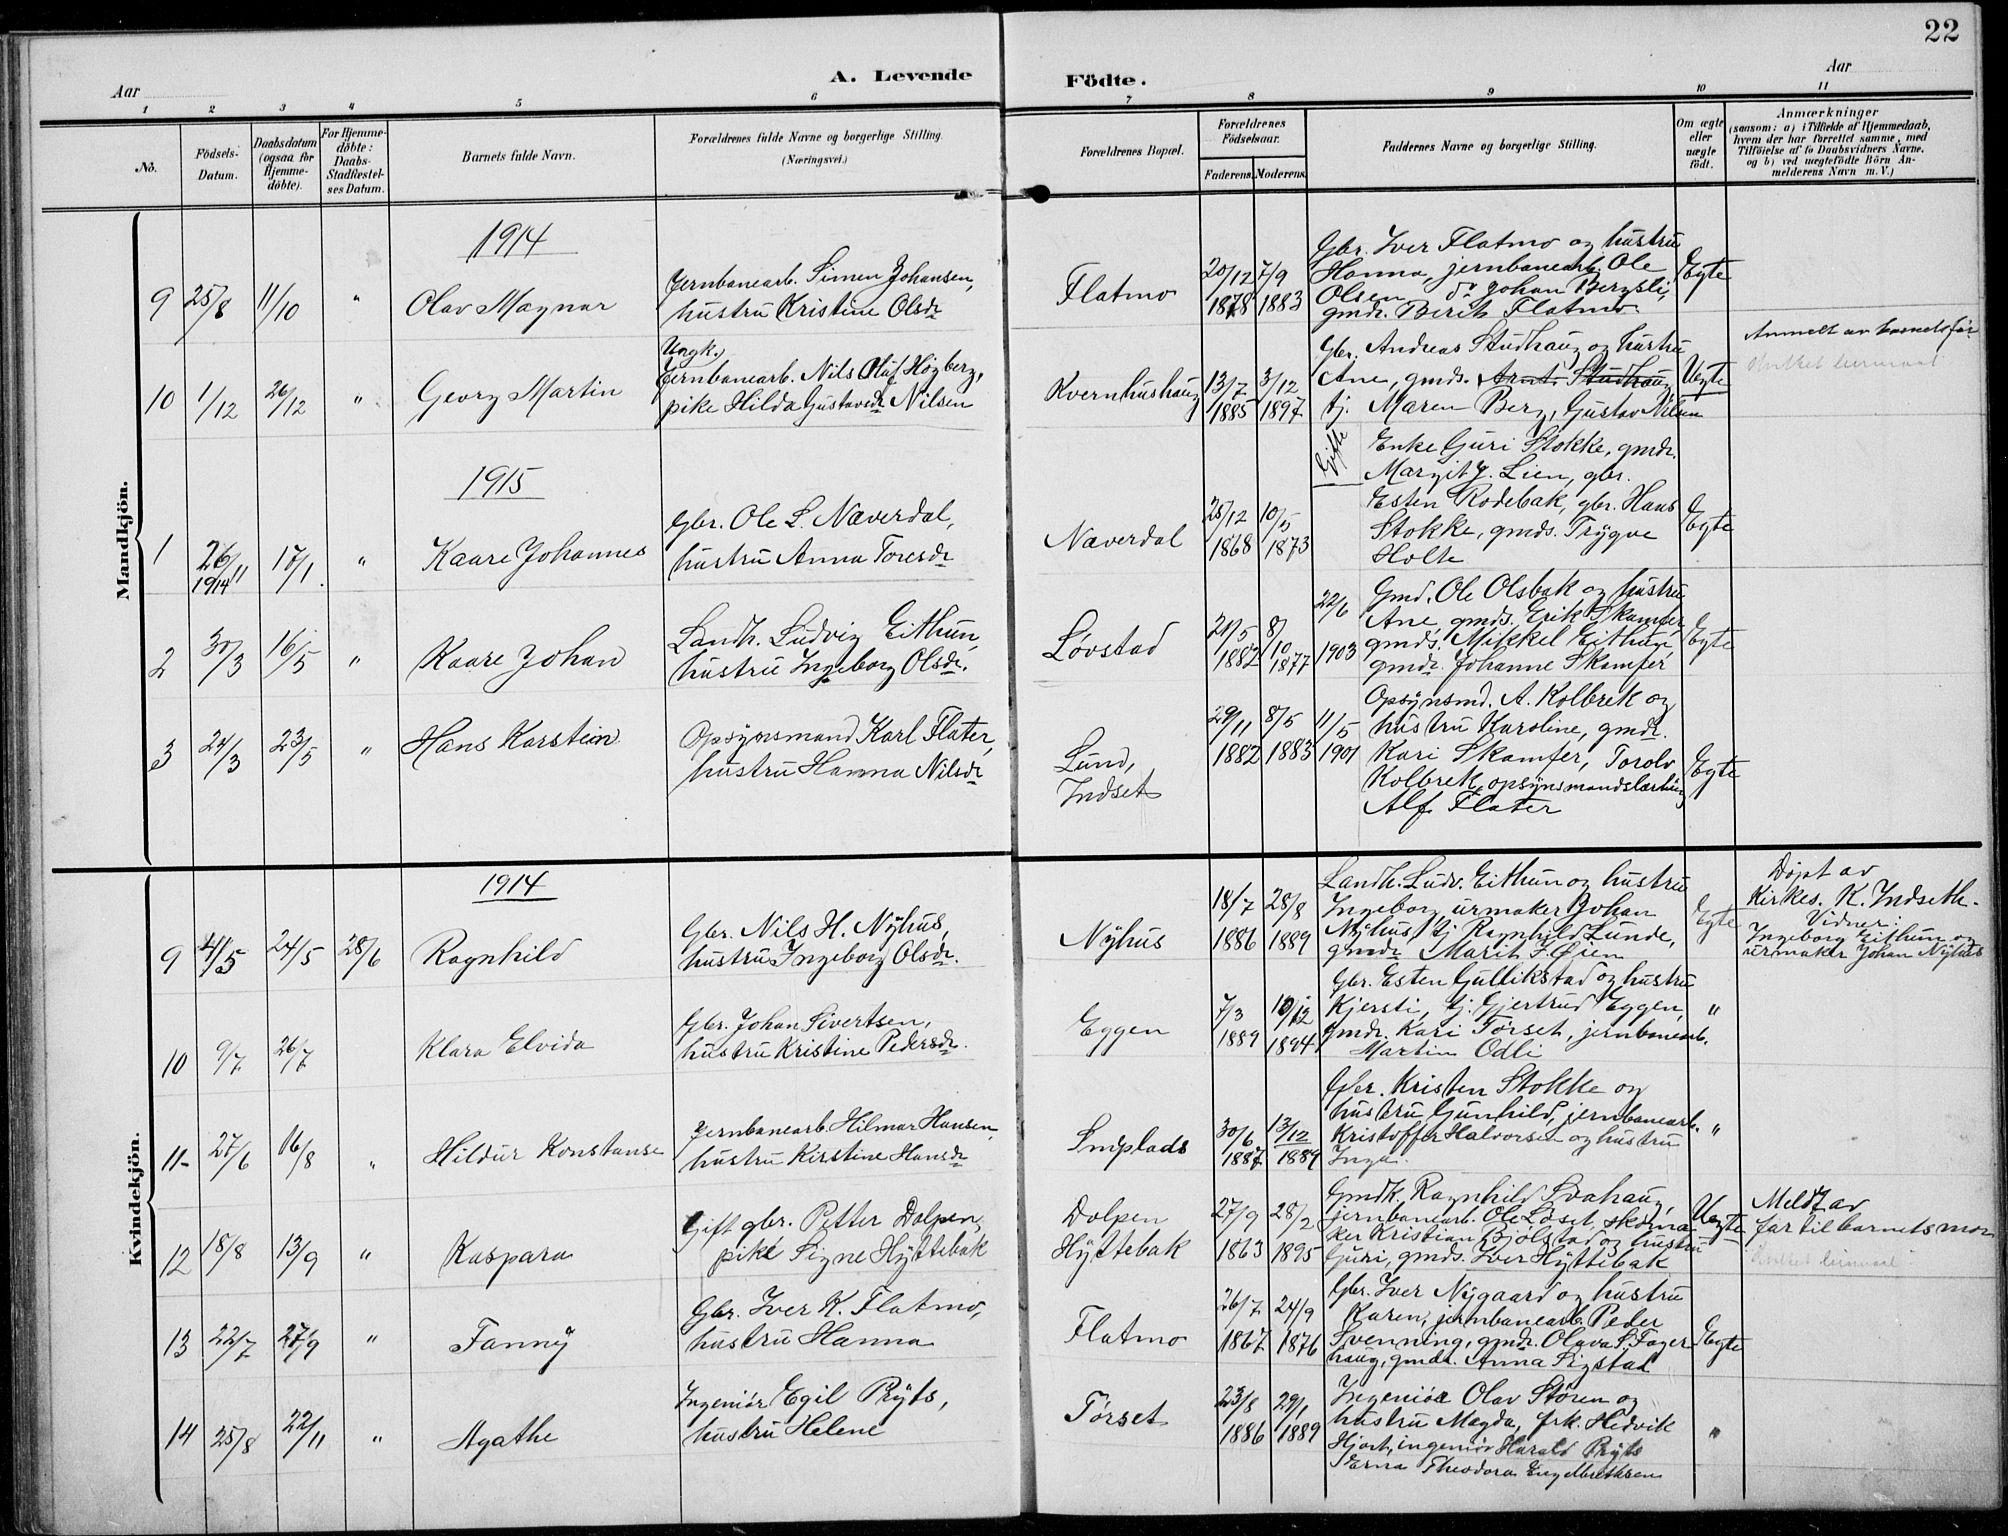 22
A. Levende Födte.
Aar
Aar
1 2 3 4 5 6 7 8 9 10 11
No.
Födsels-
Datum.
Daabsdatum
(ogsaa for
Hjemme-
döbte).
For Hjemme-
döbte:
Daabs-
Stadfæstel-
ses Datum.
Barnets fulde Navn.
Forældrenes fulde Navne og borgerlige Stilling.
(Næringsvei.)
Forældrenes Bopæl.
Forældrenes
Födselsaar.
Faderens. Moderens.
Faddernes Navne og borgerlige Stilling.
Om ægte
eller
uægte
födt.
Anmærkninger
(saasom: a) i Tilfælde af Hjemmedaab,
hvem der har forrettet samme, med
Tilföielse af to Daabsvidners Navne,
og b) ved uægtefödte Börn An-
melderens Navn m. V.)
Mandkjön.
1914
9 25/8 11/10 "
Olav Magnar
Jernbanearb. Simen Johansen,
hustru Kristine Olsdr
Flatmo
20/12 7/9
1878 1883
Gbr. Iver Flatmo og hustru
Hanna, jernbanearb. Ole
Olsen do Johan Bergsli,
gmdr. Berit Flatmo
Egte
10 1/12 26/12 "
Georg Martin
Ungk.
Jernbanearb. Nils Oluf Högberg,
pike Hilda Gustavsdr Nilsen
Kvernhushaug
13/7 3/12
1885 1897
Gbr. Andreas Studhaug og hustru
Ane, gmds. Arnt Studhaug
tj. Maren Berg, Gustav Nilsen
Uegte
Anmelt av barnets far
Gifte
1915
1 26/11 17/1 "
1914
Kaare Johannes
Gbr. Ole L. Næverdal,
hustru Anna Toresdr
Næverdal
25/12 10/5
1868 1873
Enke Guri Stokke, gmdr.
Margit J. Lien, gbr.
Esten Rodebak, gbr. Hans
Stokke, gmds. Trygve
Holte
Egte
2 30/3 16/5 "
Kaare Johan
Landh. Ludvig Eithun,
hustru Ingeborg Olsdr.
Løvstad
21/5 8/10 22/6
1882 1877 1903
Gmd. Ole Olsbak og hustru
Ane, gmds. Erik Skamfer,
gmds. Mikkel Eithun,
gmdr. Johanne Skamfer
Egte
3 24/3 23/5 "
Hans Karstein
Opsynsmand Karl Flater,
hustru Hanna Nilsdr
Lund,
Indset
29/11 8/5 11/5
1882 1883 1901
Opsynsmd. A. Kolbrek og
hustru Karoline, gmdr.
Kari Skamfer, Torolv
Kolbrek, opsynsmandslærling
Alf Flater
Egte
Kvindekjön.
1914
9 4/5 24/5 28/6
Ragnhild
Gbr. Nils H. Nyhus,
hustru Ingeborg Olsdr.
Nyhus
18/7 28/8
1886 1889
Landh. Ludv. Eithun og hustru
Ingeborg, urmaker Johan
Nyhus, tj. Ragnhild Lunde,
gmdr Marit I. Øien
Egte
Døpt av
Kirkes. K. Indseth.
Vidner:
Ingeborg Eithun og
urmaker Johan Nyhus
10 9/7 26/7
Klara Elvida
Gbr. Johan Sivertsen,
hustru Kristine Pedersdr.
Eggen
7/3 10/12
1889 1894
Gbr. Esten Gullikstad og hustru
Kjersti, tj. Gjertrud Eggen,
gmdr. Kari Tørset, jernbanearb.
Martin Odli
"
11- 27/6 16/8 "
Hildur Konstanse
Jernbanearb. Hilmar Hansen,
hustru Kirstine Hansdr
Smplads
30/6 13/12
1887 1889
Gbr. Kristen Stokke og
hustru Gunhild, jernbanearb.
Kristoffer Halvorsen og hustru
Inga.
"
12 18/8 13/9 "
Kaspara
Gift gbr. Petter Dolpen,
pike Signe Hyttebak
Dolpen
Hyttebak
27/9 28/2
1863 1895
Gmdk. Ragnhild Svahaug,
jernbanearb. Ole Løset, skoma-
ker Kristian Bjølstad og hustru
Guri, gmds. Iver Hyttebak
Uegte
Meldt av
far til barnets mor
13 22/7 27/9 "
Fanny
Gbr. Iver K. Flatmo,
hustru Hanna
Flatmo
26/7 24/9
1867 1876
Gbr. Iver Nygaard og hustru
Karen, jernbanearb. Peder
Svenning, gmdr. Olava S. Fager-
haug, gmdr. Anna Sigstad
Egte
14 25/8 22/11 "
Agathe
Ingeniör Egil Pryts,
hustru Helene
Tørset
23/8 29/1
1886 1889
Ingeniör Olav Stören og
hustru Magda, frk. Hedvik
Hjort, ingeniør Harald Pryts
Erna Theodora Engelbrektsen
"